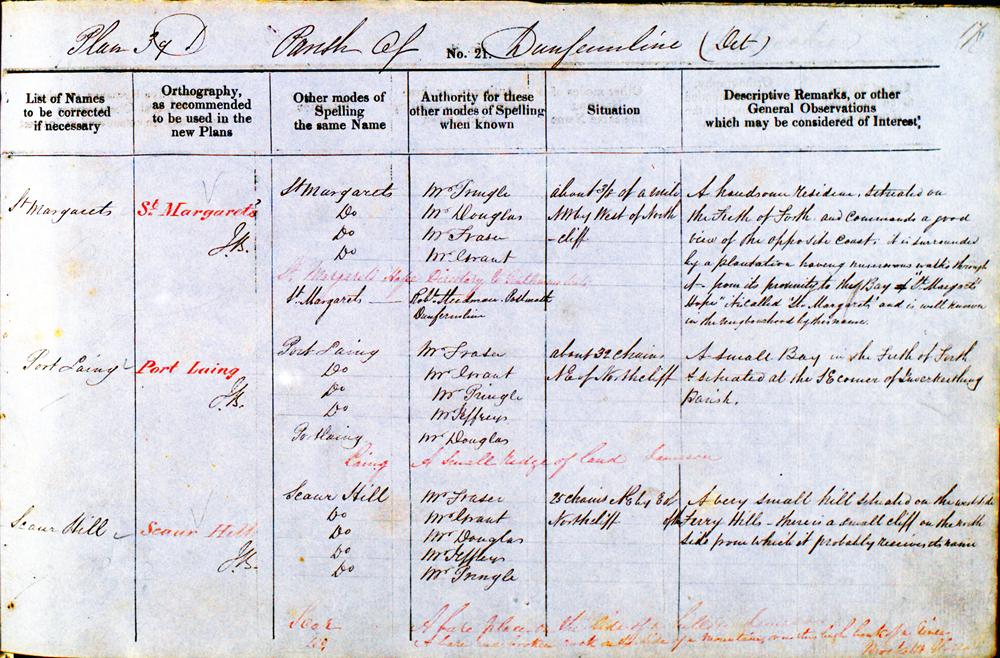 Plan 39 D Parish Of No. 21. Dunfermline (Det)
List of Names to be corrected if necessary
Orthography, as recommended to be used in the new Plans
Other modes of Spelling the same Name
Authority for these other modes of Spelling when known
Situation
Descriptive Remarks, or other General Observations which may be considered of Interest.
St Margarets
St. Margaret's
J.B.
St Margarets Mr Pringle
Do Mr Douglas
Do Mr Fraser
Do Mr Grant
St. Margaret's Hope Directory to
St Margarets — Robt. Steedman Postmaster
Dunfermline
about 3/4 of a mile
NW by West of North
-cliff
A handsome residence, situated on
the Firth of Forth and commands a good
view of the opposite coast. it is surrounded
by a plantation having numerous walks through
it – from its proximity to the Bay of "St Margarets
Hope" it is called "St. Margarets" and is well known
in the neighbourhood by this name.
Port Laing
Port Laing
J.B.
Port Laing Mr Fraser
Do Mr Grant
Do Mr Pringle
Do Mr Jeffreys
Portlaing Mr Douglas
Laing A small ridge of land Jamieson
about 32 chains
NE of Northcliff
A small Bay in the Firth of Forth
& situated at the SE corner of Inverkeithing
Parish.
Scaur Hill
Scaur Hill
J.B.
Scaur Hill Mr Fraser
Do Mr Grant
Do Mr Douglas
Do Mr Jeffreys
Do Mr Pringle
25 chains NE by E of
Northcliff
A very small hill situated on the west side
of the Ferry Hills – there is a small cliff on the north
side from which it probably receives its name
Scar A bare place on the side of a hill Jamieson
A bare and broken rock on the side of a mountain, or in the high bank of a river